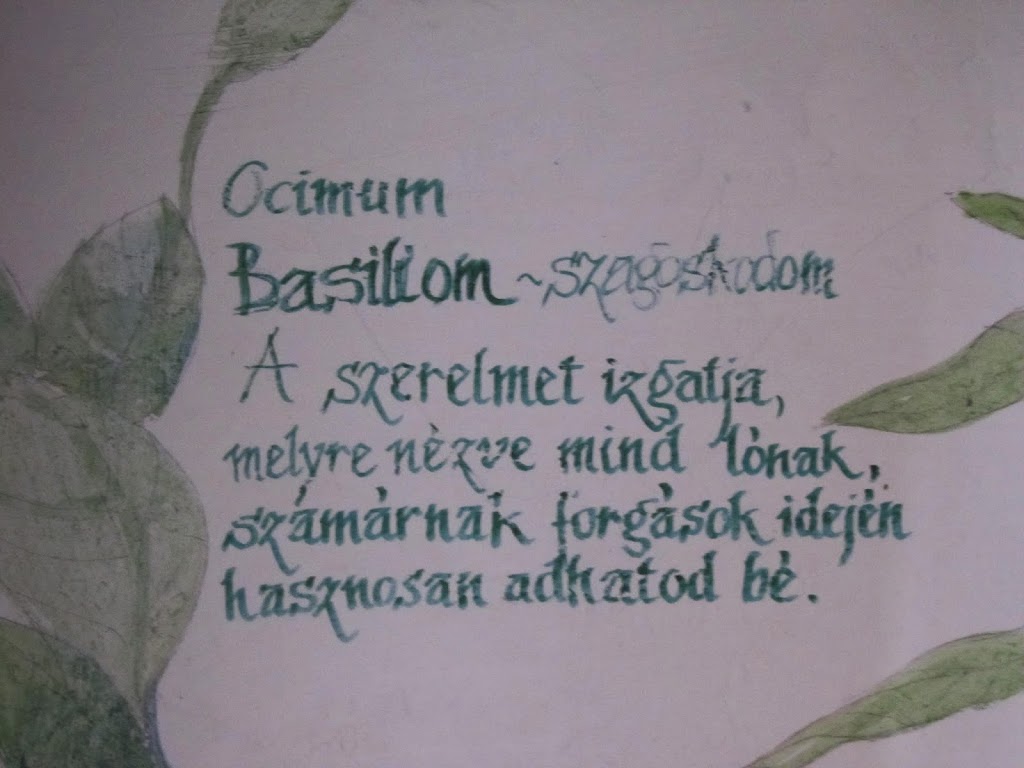 Ocimum
Basiliom ~szagoskodom
A szerelmet izgatja,
melyre nézve mind lónak,
számárnak forgások idején
hasznosan adhatod bé.